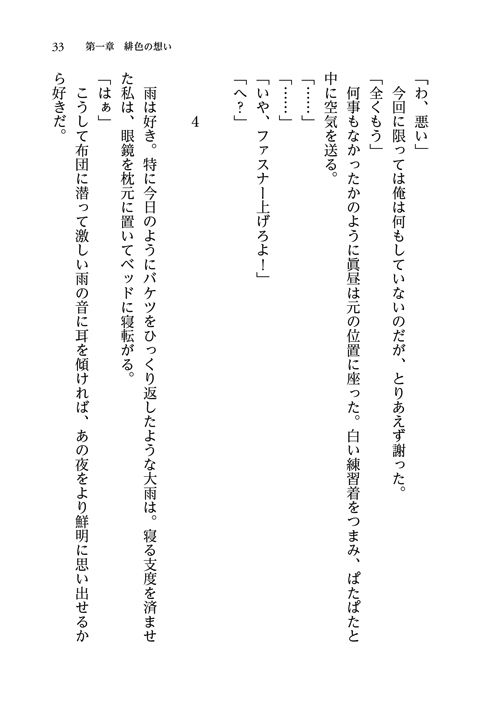 33 第一章 緋色の想い
「わ、悪い」
今回に限っては俺は何もしていないのだが、とりあえず謝った。
「全くもう」
何事もなかったかのように眞昼は元の位置に座った。白い練習着をつまみ、ぱたぱたと
中に空気を送る。
「……」
「……」
「いや、ファスナー上げろよ！」
「へ？」
4
雨は好き。特に今日のようにバケツをひっくり返したような大雨は。寝る支度を済ませ
た私は、眼鏡を枕元に置いてベッドに寝転がる。
「はぁ」
こうして布団に潜って激しい雨の音に耳を傾ければ、あの夜をより鮮明に思い出せるか
ら好きだ。